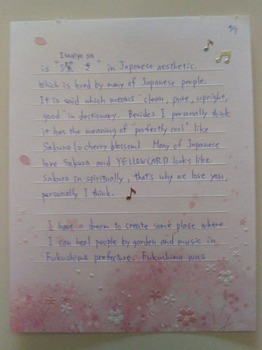 Isagiyo sa
is "潔 さ" in Japanese aesthetic.
Which is loved by many of Japanese people.
It is said which means "clean, pure, upright,
good" in dictionary. Besides I personally think
it has the meaning of "perfectly cool" like
Sakura (= cherry blossom). Many of Japanese
love Sakura and YELLOWCARD looks like
Sakura in spiritually, that's why we love you,
personally I think.
I have a dream to create some place where
I can heal people by garden and music in
Fukushima prefecture. Fukushima was